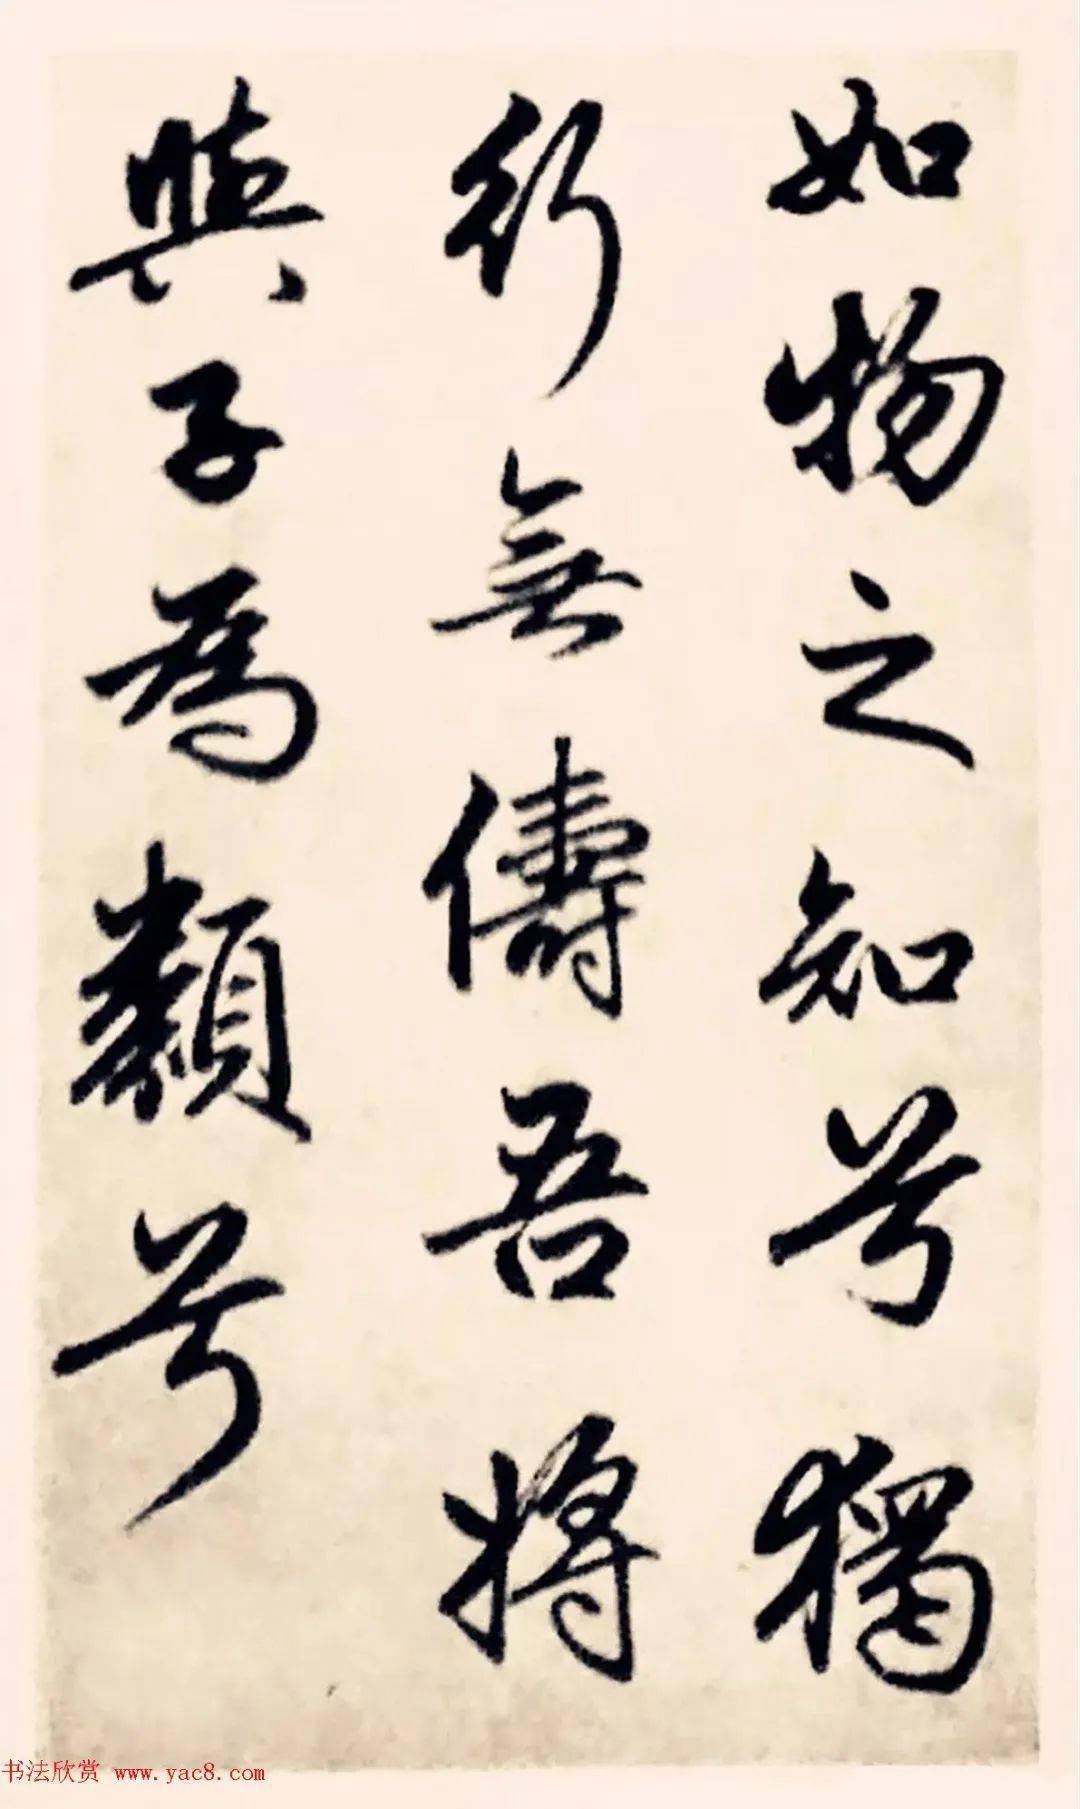 如物之知兮獨
行無儔吾將
與子為類兮
书法欣赏 www.yac8.com